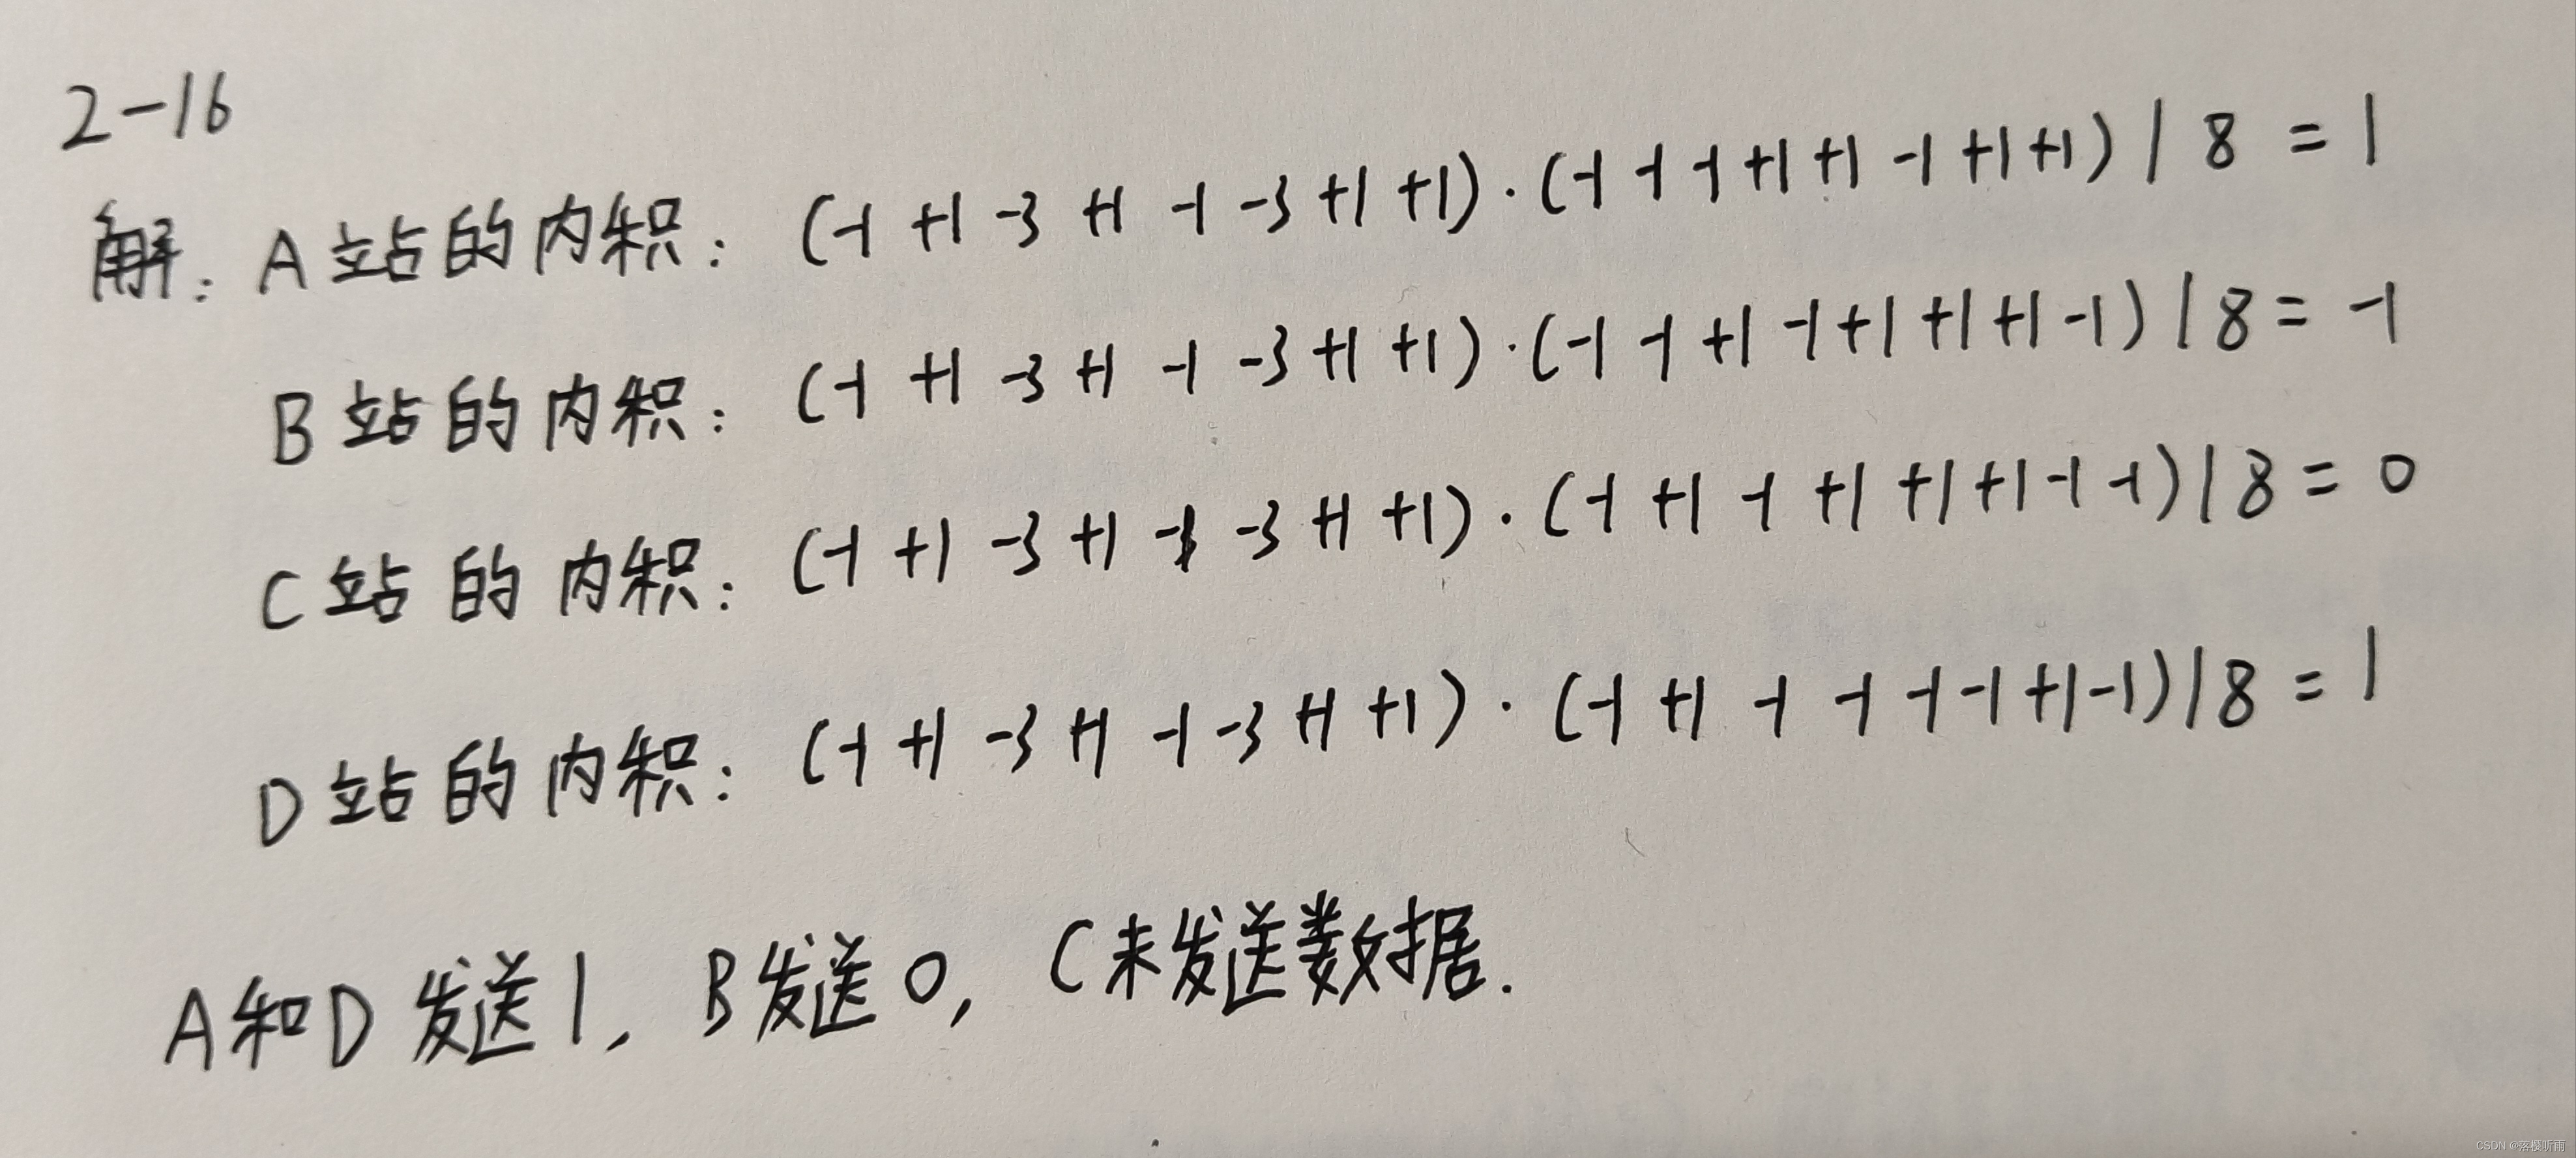 2-16
解: A站的内积: (-1 +1 -3 +1 -1 -3 +1 +1)·(-1 -1 -1 +1 +1 -1 +1 +1) / 8 = 1
B站的内积: (-1 +1 -3 +1 -1 -3 +1 +1)·(-1 -1 +1 -1 +1 +1 +1 -1) / 8 = -1
C站的内积: (-1 +1 -3 +1 -1 -3 +1 +1)·(-1 +1 -1 +1 +1 +1 -1 -1) / 8 = 0
D站的内积: (-1 +1 -3 +1 -1 -3 +1 +1)·(-1 +1 -1 -1 -1 -1 +1 -1) / 8 = 1
A和D发送1, B发送0, C未发送数据.
CSDN @落樱听雨